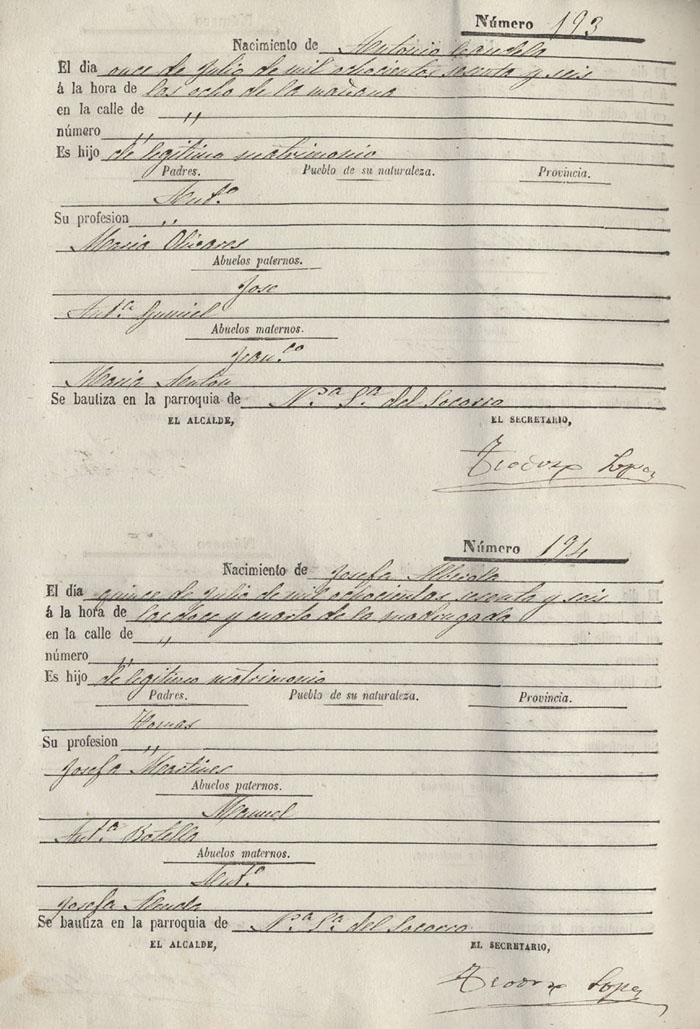 Número 193
Nacimiento de Antonio Candela
El dia once de Julio de mil ochocientos sesenta y seis
á la hora de las ocho de la mañana
en la calle de "
número "
Es hijo de legitimo matrimonio
Padres. Pueblo de su naturaleza. Provincia.
Ant.º
Su profesion "
Maria Olivares
Abuelos paternos.
Jose
Ant.ª
Abuelos maternos.
Fran.co
Maria Anton
Se bautiza en la parroquia de N.ª S.ª del Socorro
EL ALCALDE, EL SECRETARIO,
Teodoro Lopez
Número 194
Nacimiento de Josefa Alberola
El día quince de Julio de mil ochocientos sesenta y seis
á la hora de las doce y cuarto de la madrugada
en la calle de "
número "
Es hijo de legitimo matrimonio
Padres. Pueblo de su naturaleza. Provincia.
Tomas
Su profesion "
Josefa Martines
Abuelos paternos.
Manuel
Ant.ª Botella
Abuelos maternos.
Ant.º
Josefa
Se bautiza en la parroquia de N.ª S.ª del Socorro
EL ALCALDE, EL SECRETARIO,
Teodoro Lopez